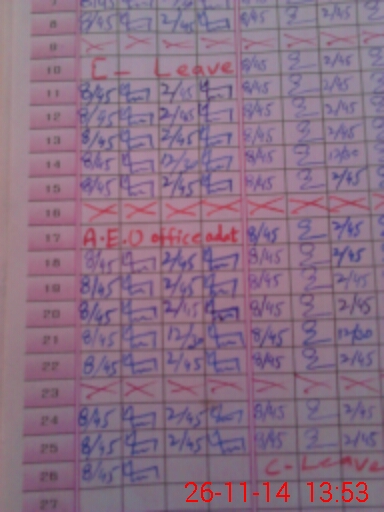 8 8/45 2/45 8/45 2/45
9 × × × × × × ×
10 C - Leave 8/45 2/45
11 8/45 2/45 8/45 2/45
12 8/45 2/45 8/45 2/45
13 8/45 2/45 8/45 2/45
14 8/45 12/30 8/45 12/30
15 8/45 2/45 8/45 2/45
16 × × × × × × ×
17 A.E.O office 8/45 2/45
18 8/45 2/45 8/45 2/45
19 8/45 2/45 8/45 2/45
20 8/45 2/45 8/45 2/45
21 8/45 12/30 8/45 12/30
22 8/45 2/45 8/45 2/45
23 × × × × × × ×
24 8/45 2/45 8/45 2/45
25 8/45 2/45 8/45 2/45
26 8/45 C - Leave
27
26-11-14 13:53